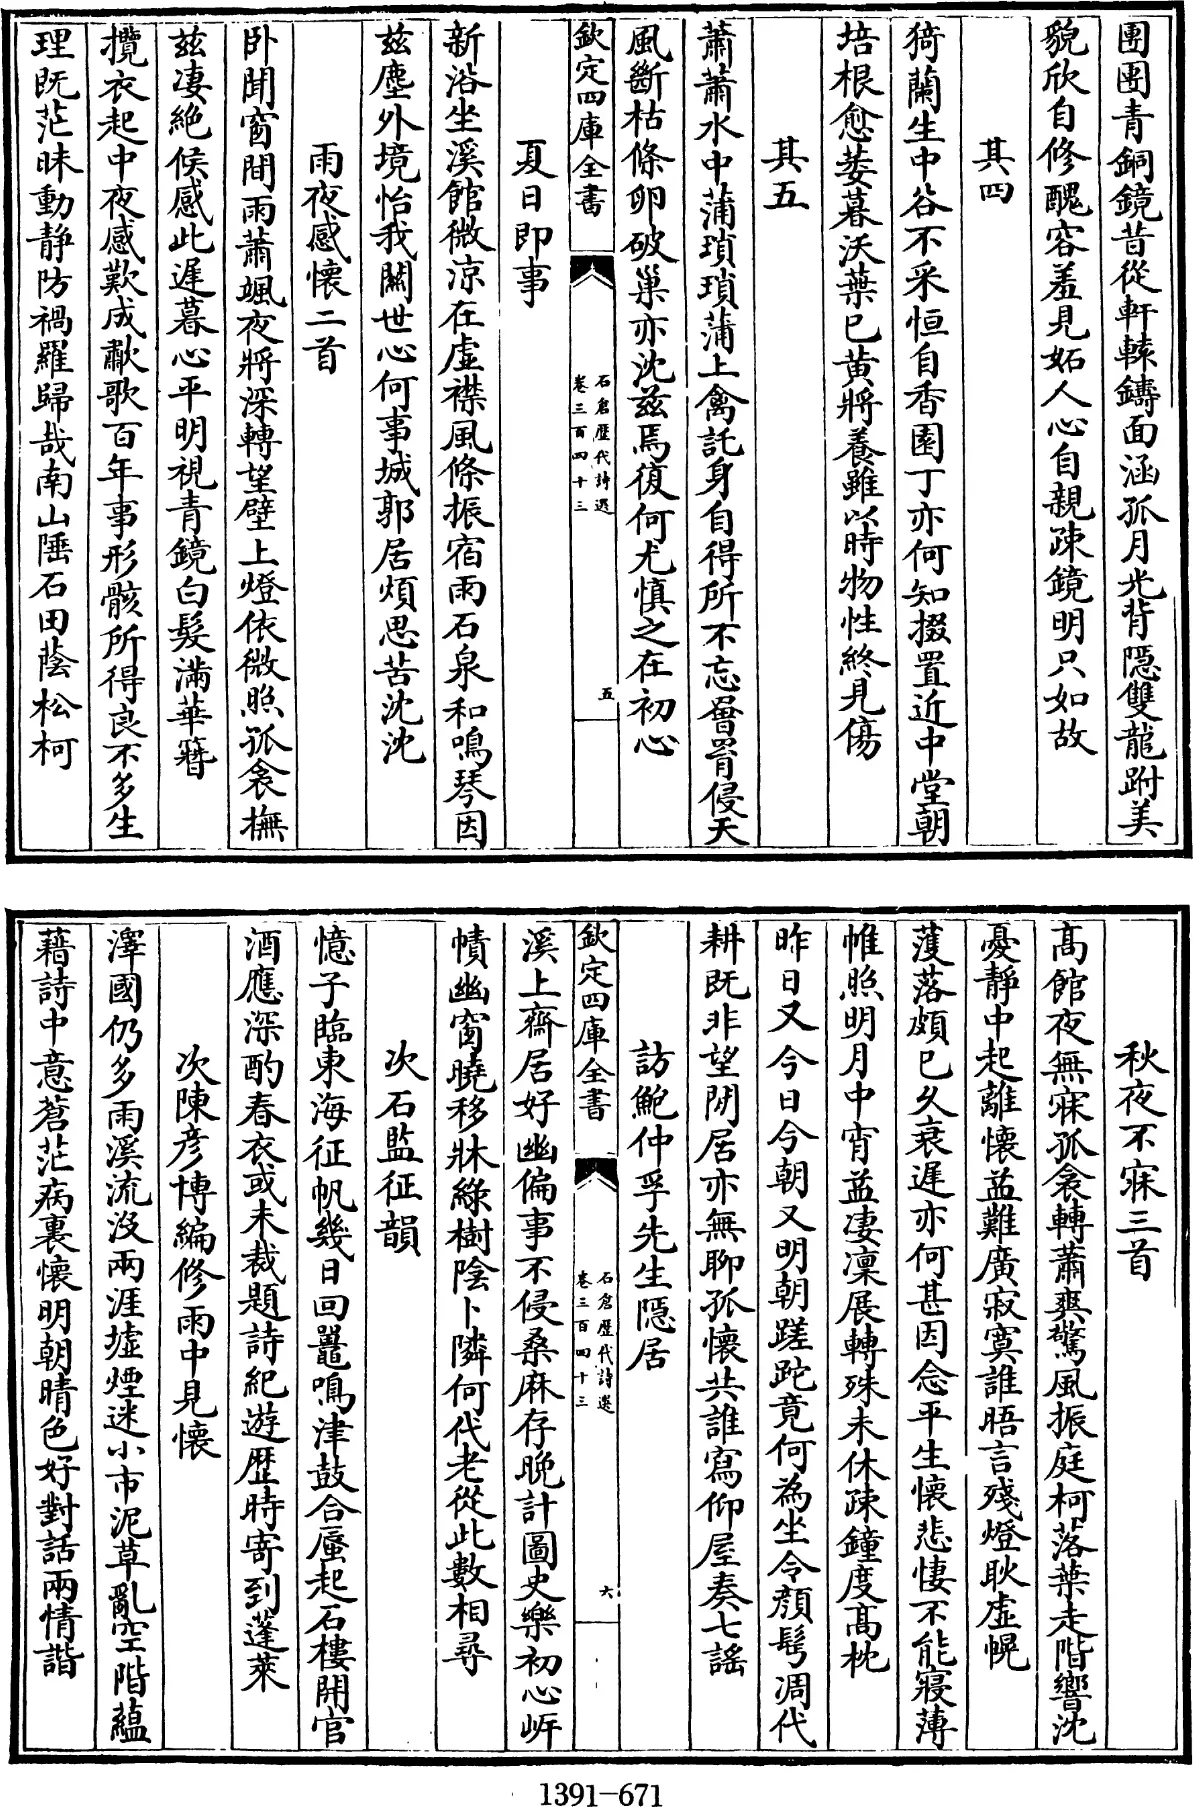 團團青銅鏡昔從軒轅鑄面涵孤月光背隱雙龍跗美
貌欣自修醜容羞見妬人心自親疎鏡明只如故
其四
猗蘭生中谷不采恒自香園丁亦何知掇置近中堂朝
培根愈萎暮沃葉已黄將養雖以時物性終見傷
其五
蕭蕭水中蒲瑣瑣蒲上禽託身自得所不忘罾罥侵天
風斷枯條卵破巢亦沈兹焉復何尤慎之在初心
欽定四庫全書
石倉歷代詩選
卷三百四十三
五
夏日即事
新浴坐溪館微凉在虚襟風條振宿雨石泉和鳴琴因
兹塵外境怡我闗世心何事城郭居煩思苦沈沈
雨夜感懷二首
卧聞窗間雨蕭颯夜將深轉望壁上燈依微照孤衾撫
兹凄絶候感此遲暮心平明視青鏡白髮滿華簪
攬衣起中夜感歎成歗歌百年事形骸所得良不多生
理既茫昧動靜防禍羅歸哉南山陲石田蔭松柯
秋夜不寐三首
髙館夜無寐孤衾轉蕭爽驚風振庭柯落葉走階響沈
憂靜中起離懷益難廣寂寞誰晤言殘燈耿虚幌
濩落頗已久衰遲亦何甚因念平生懷悲悽不能寢薄
帷照明月中宵益凄凜展轉殊未休疎鐘度髙枕
昨日又今日今朝又明朝蹉跎竟何為坐令顔髩凋代
耕既非望閒居亦無聊孤懷共誰寫仰屋奏七謡
訪鮑仲孚先生隱居
欽定四庫全書
石倉歷代詩選
卷三百四十三
六
溪上齋居好幽偏事不侵桑麻存晚計圖史樂初心岸
幘幽窗曉移牀緑樹陰卜隣何代老從此數相尋
次石監征韻
憶子臨東海征帆幾日回鼉鳴津鼓合蜃起石樓開官
酒應深酌春衣或未裁題詩紀遊歷時寄到蓬萊
次陳彥博編修雨中見懷
澤國仍多雨溪流没兩涯墟煙迷小市泥草亂空階藴
藉詩中意蒼茫病裏懷明朝晴色好對話兩情諧
1391-671